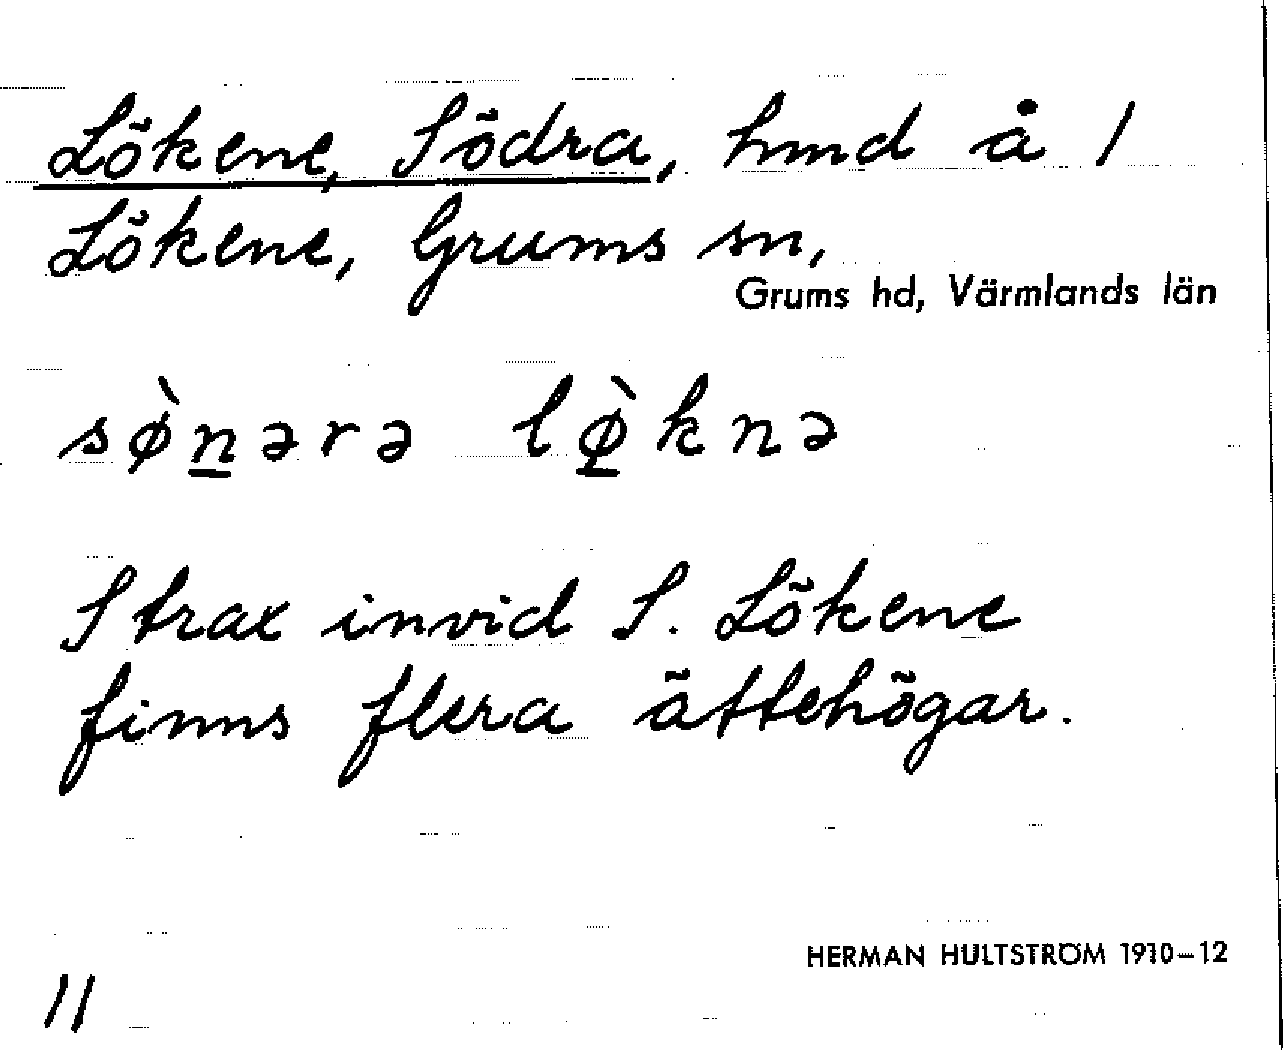 Lökene, Södra, hmd å 1
Lökene, Grums sn,
Grums hd, Värmlands län
sø̀n̲ərə lø̲̀knə
Strax invid S. Lökene
finns flera ättehögar.
HERMAN HULTSTRÖM 1910–12
11